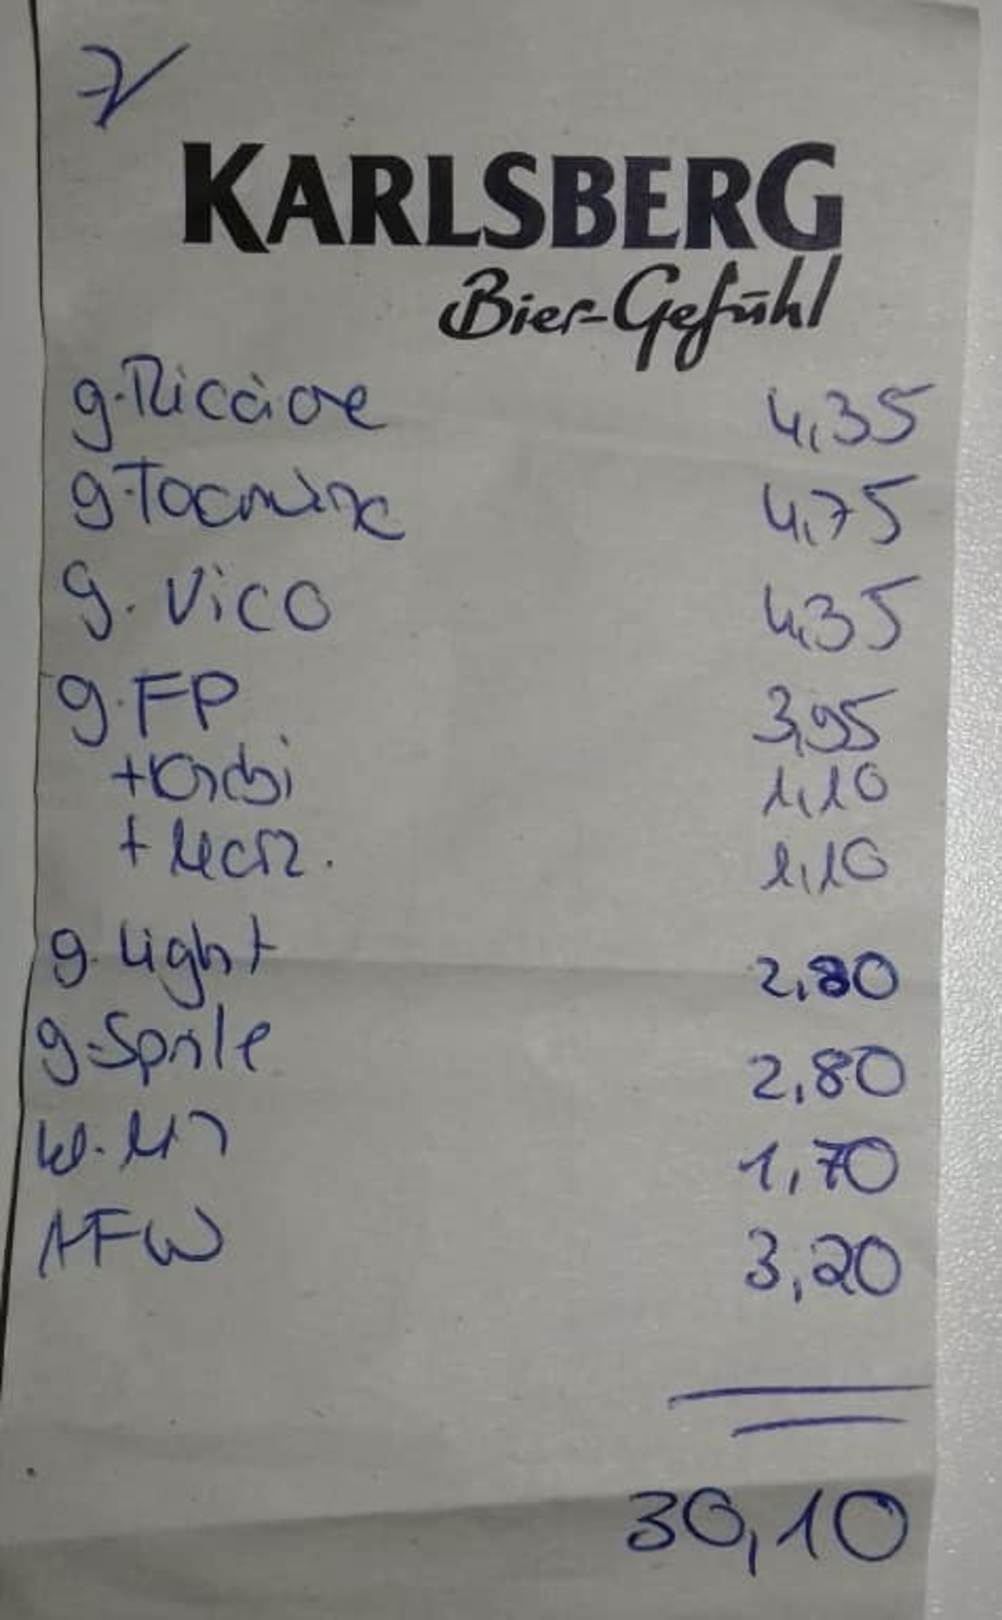 7
KARLSBERG
Bier-Gefühl
g. Riccione 4,35
g. Taormina 4,75
g. Vico 4,35
g. FP 3,95
+ 1,10
+ 1,10
g. Light 2,80
g. Sprite 2,80
kl. 1,70
AFW 3,20
30,10